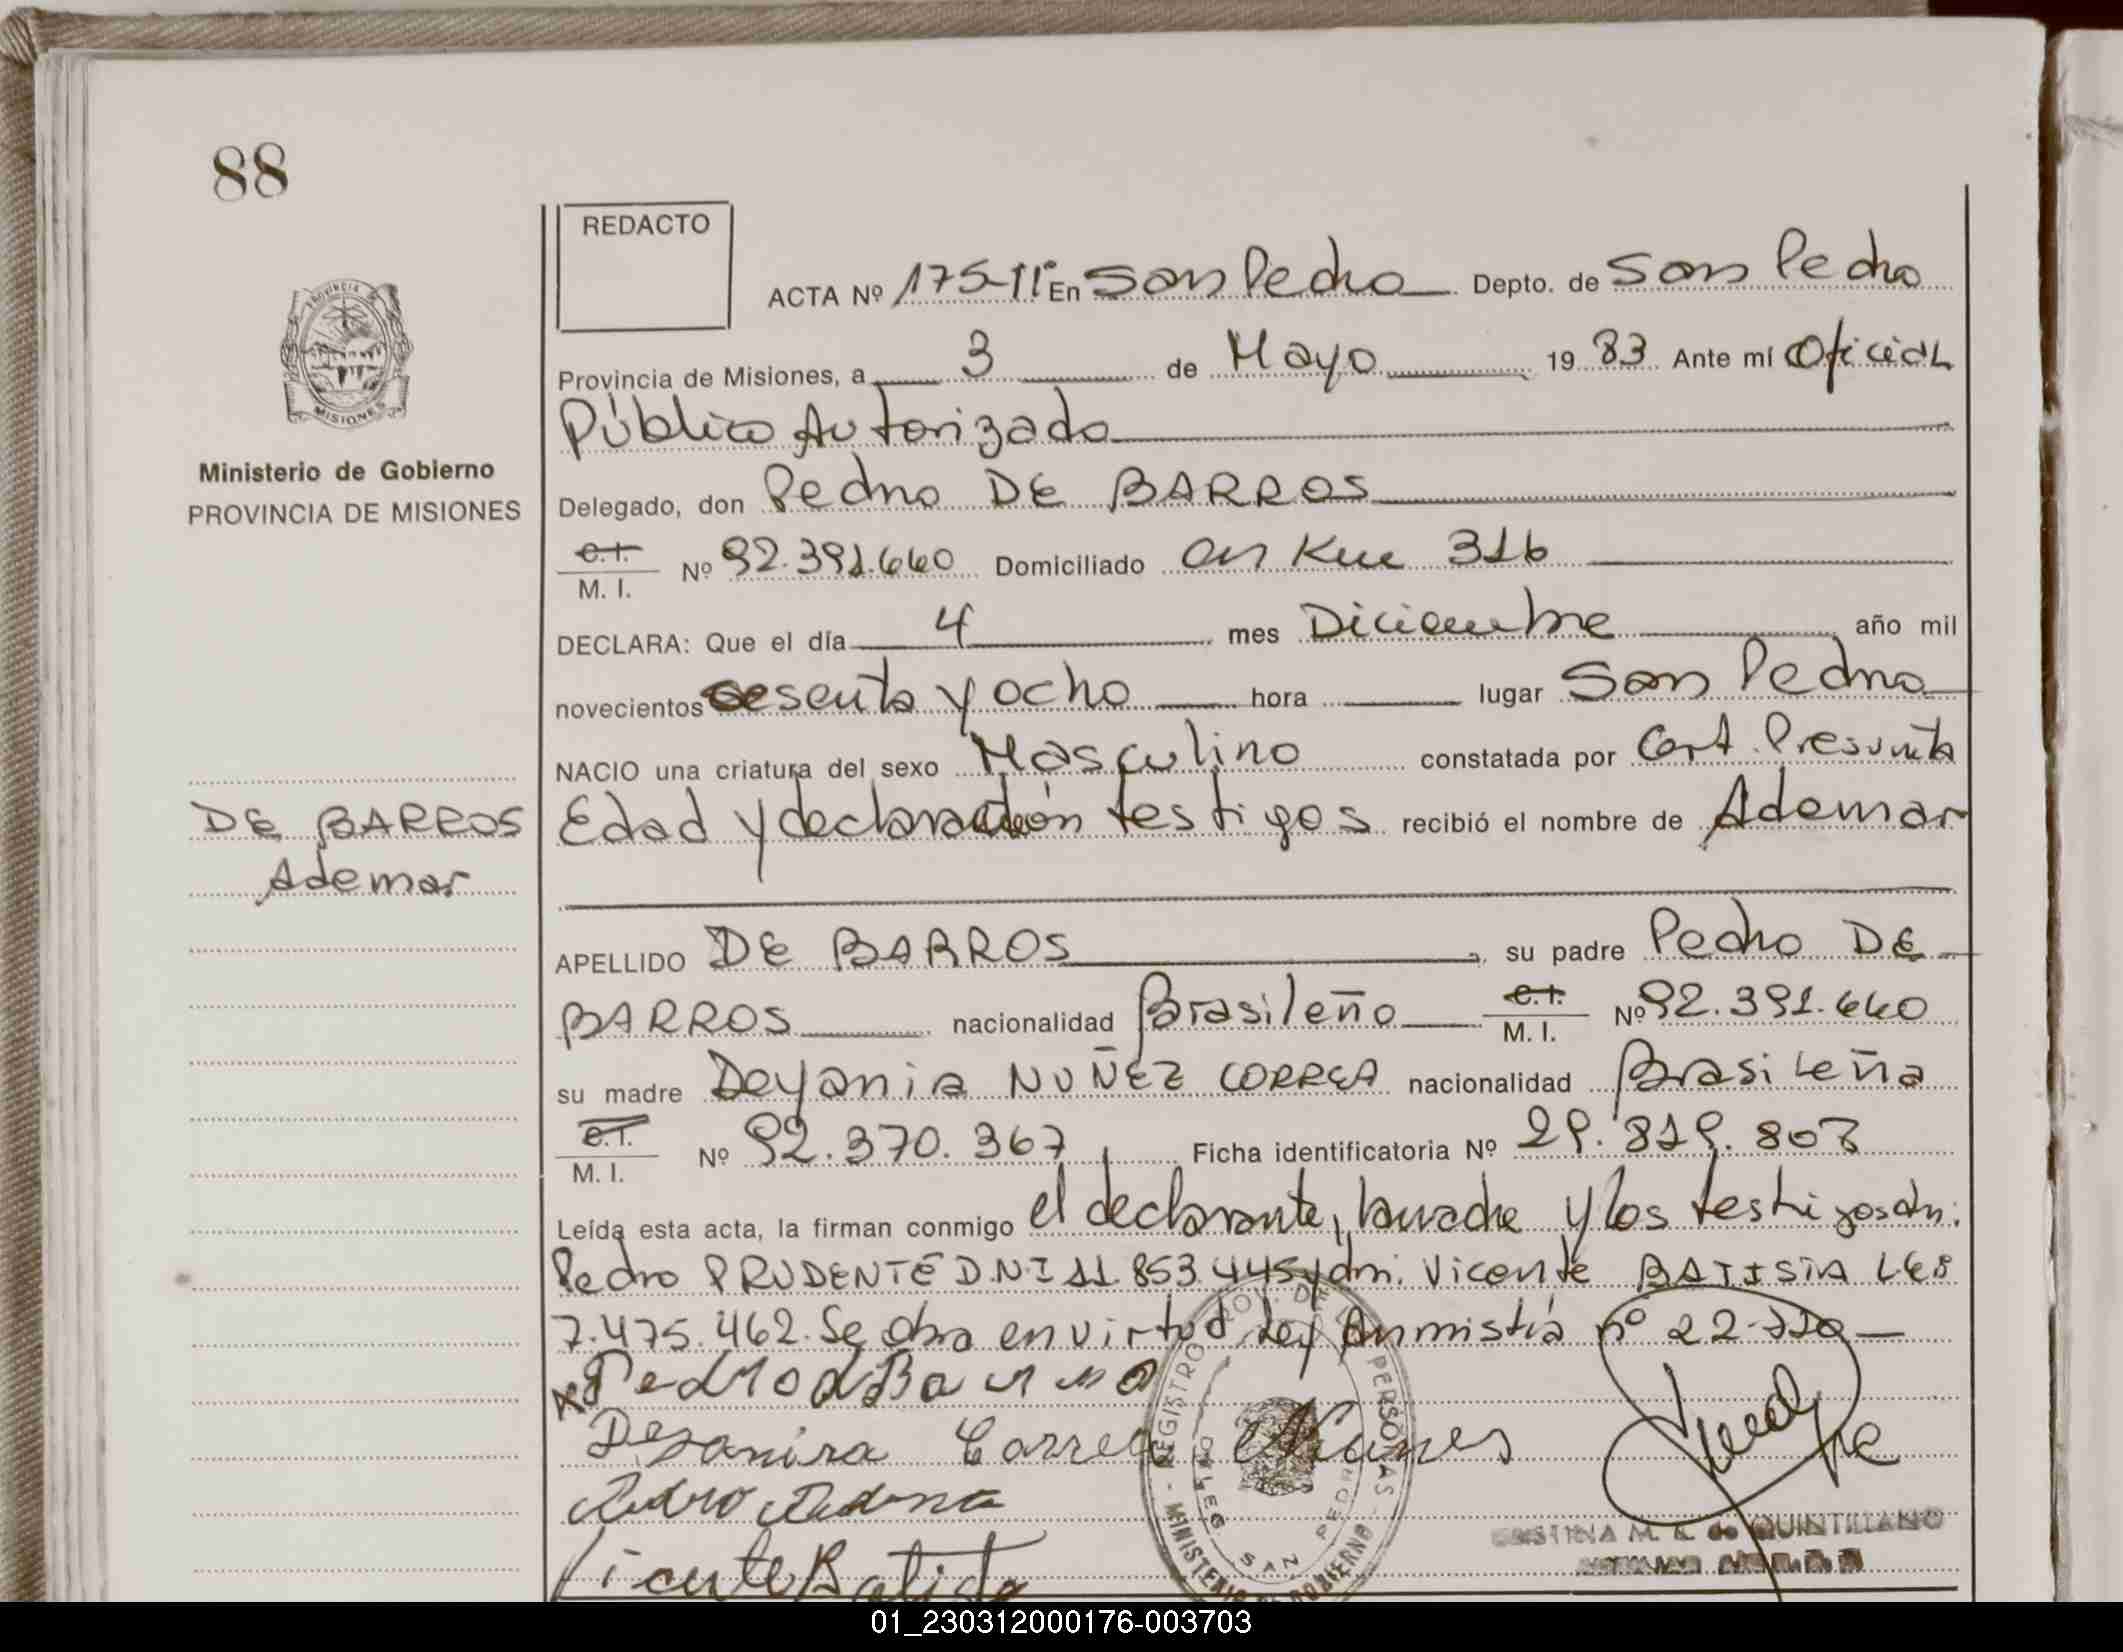 88
REDACTO
ACTA Nº 175-Tº En San Pedro Depto. de San Pedro
Provincia de Misiones, a 3 de Mayo 19 83 Ante mí Oficial
Público Autorizado
Delegado, don Pedro DE BARROS
C.I. M. I. Nº 92.391.640 Domiciliado en Km 316
DECLARA: Que el día 4 mes Diciembre año mil
novecientos sesenta y ocho hora lugar San Pedro
NACIO una criatura del sexo Masculino constatada por Cert. Presunta
Edad y declaración testigos recibió el nombre de Ademar
APELLIDO DE BARROS, su padre Pedro DE
BARROS nacionalidad Brasileño C.I. M. I. Nº 92.391.640
su madre Deyania NUÑEZ CORREA nacionalidad Brasileña
C.I. M. I. Nº 92.370.367 Ficha identificatoria Nº 29.819.803
Leída esta acta, la firman conmigo el declarante, la madre y los testigos dn.
Pedro PRUDENTE D.N.I 11.853.445 y dn. Vicente BATISTA LE
7.475.462. Se obra en virtud Ley Anmistía nº 22-
Pedro d Barros
Deyanira Correa Nunes
Pedro
Vicente Batista
Ministerio de Gobierno
PROVINCIA DE MISIONES
PROVINCIA DE MISIONES
DE BARROS
Ademar
REGISTRO PROV. DE PERSONAS
MINISTERIO DE GOBIERNO
DELEG SAN PEDRO
CRISTINA M. de QUINTILLANO
01_230312000176-003703